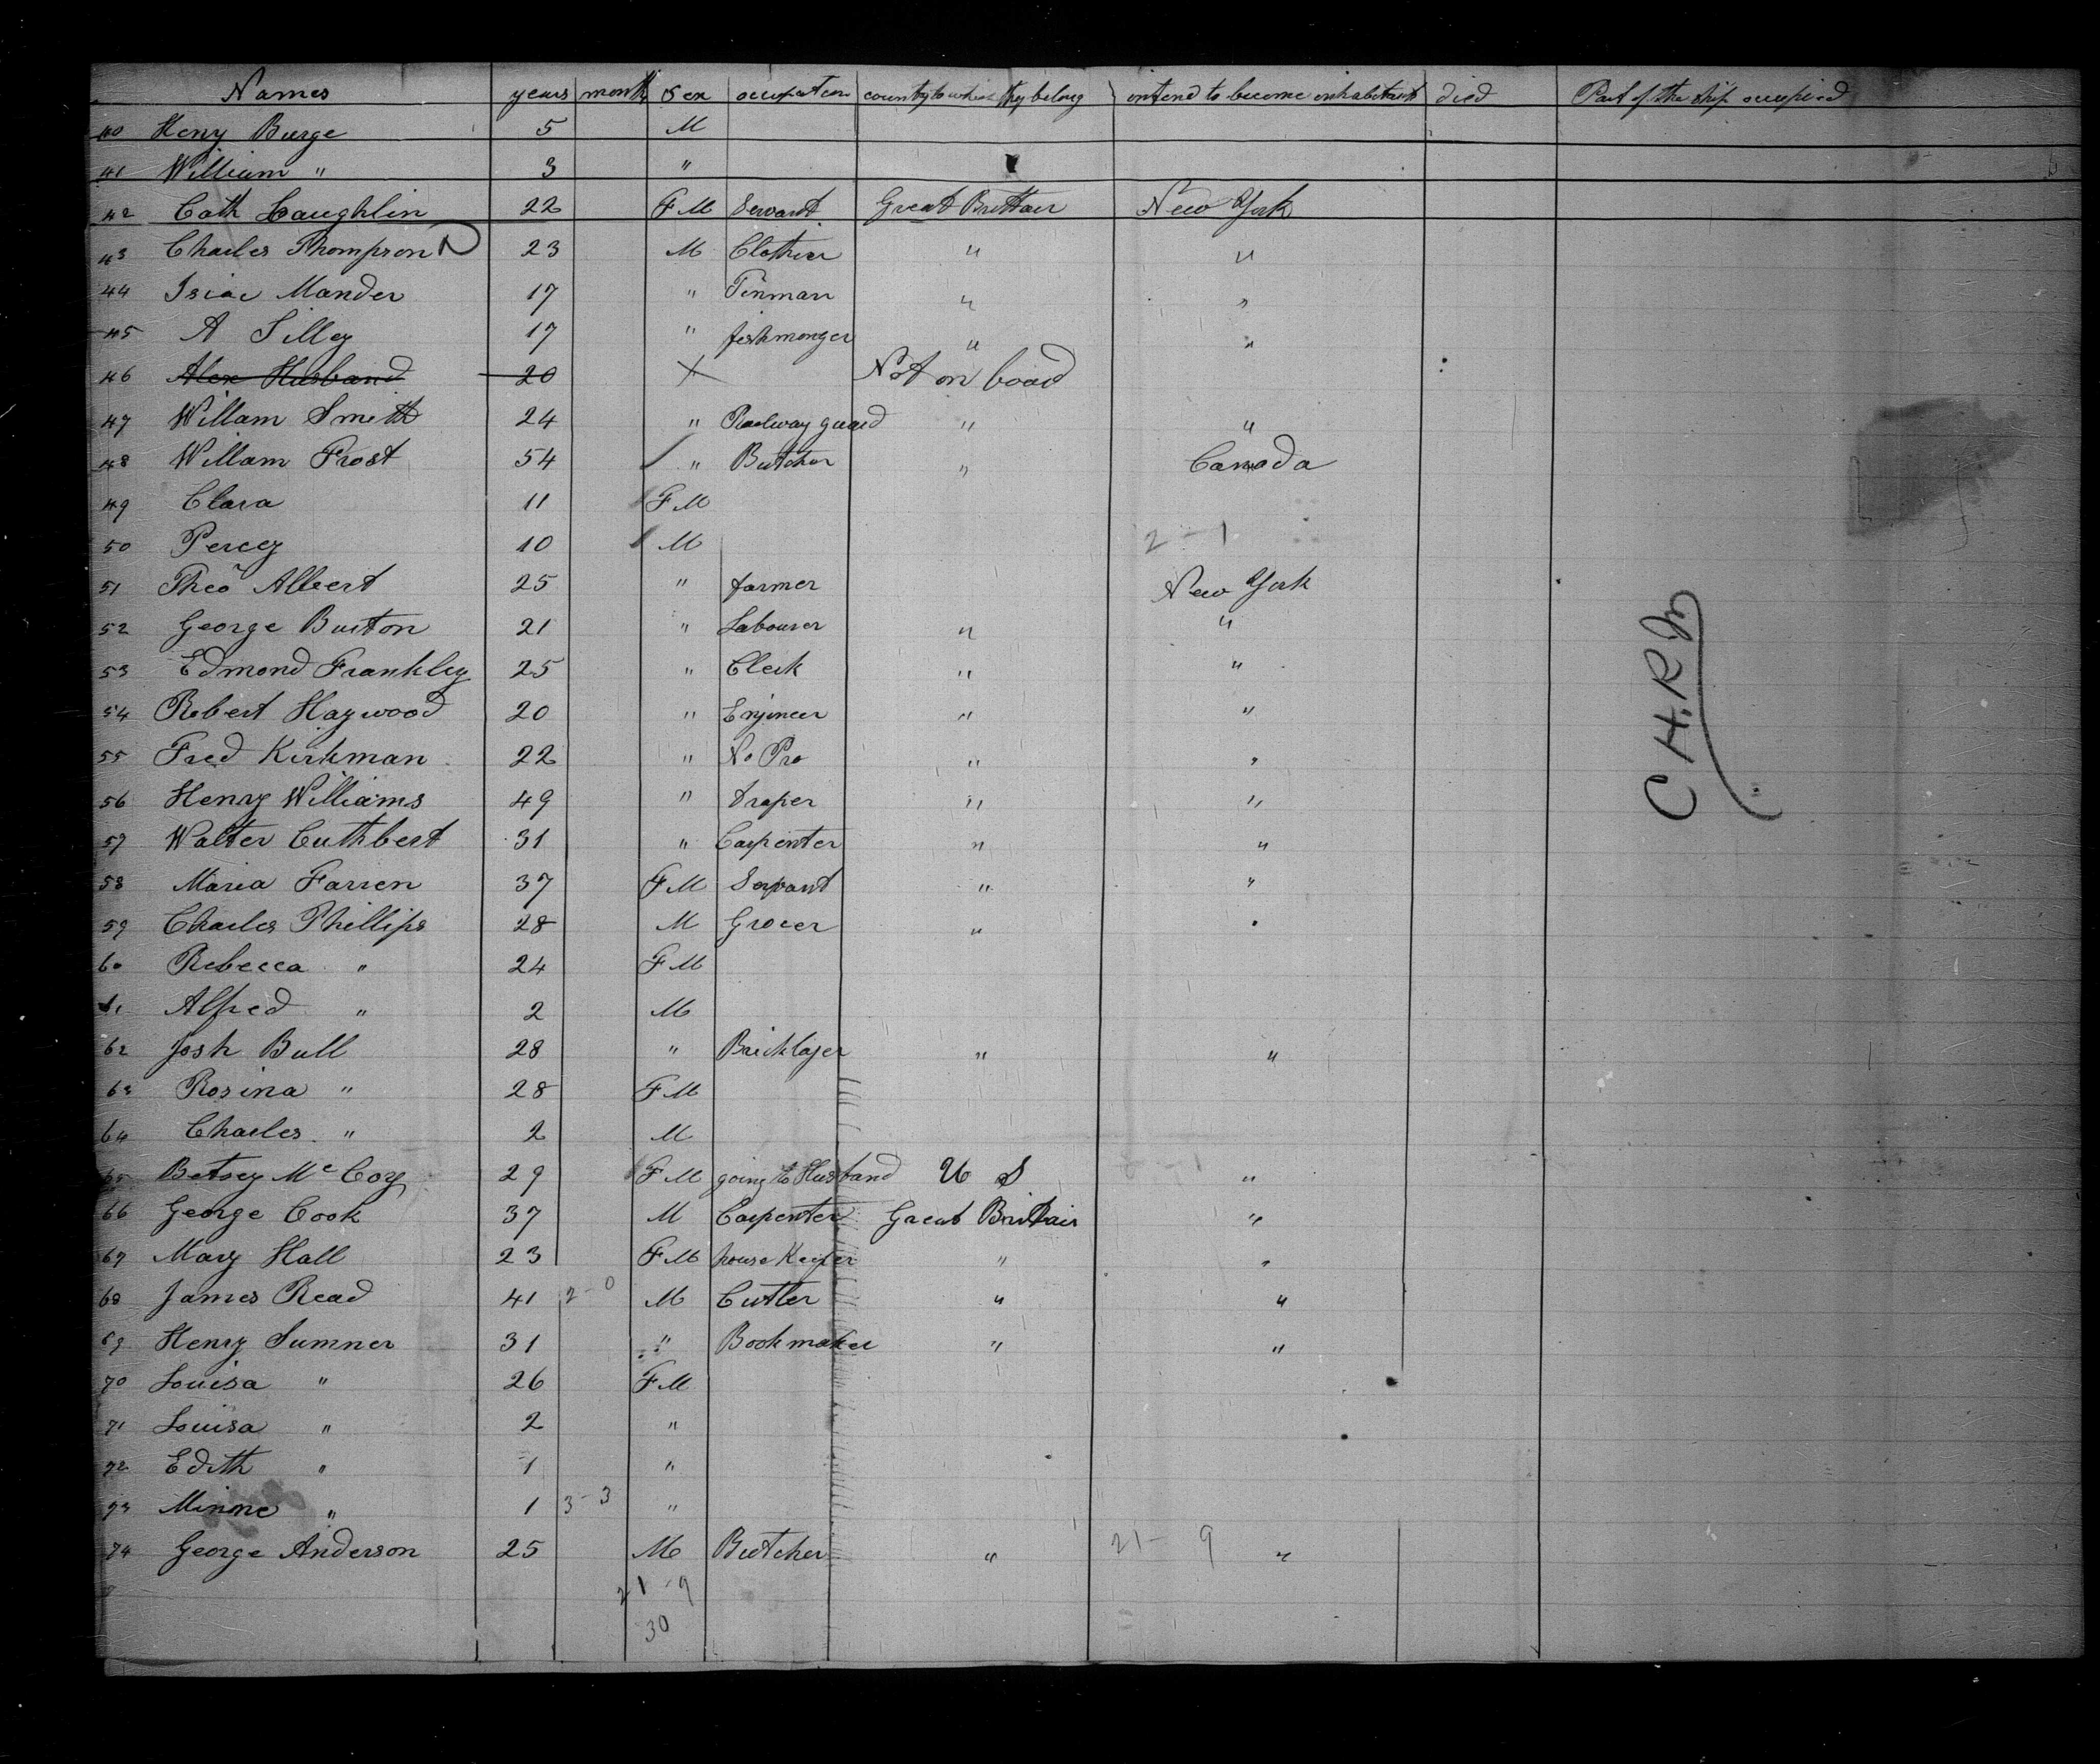 Names years month Sex occupation country to which they belong intend to become inhabitants died Part of the ship occupied
40 Heny Burge 5 M
41 William " 3 "
42 Cath Laughlin 22 F M Servant Great Brittain New York
43 Charles Thompson 23 M Clothier " "
44 Isiac Mander 17 " Tinman " "
45 A Silley 17 " fishmonger " "
46 Alex Husband 20 X Not on board
47 Willam Smith 24 " Railway guard " "
48 Willam Frost 54 " Butcher " Canada
49 Clara 11 F M
50 Percy 10 M 2 - 1
51 Theo Albert 25 " farmer New York
52 George Burton 21 " Labourer " "
53 Edmond Frankley 25 " Clerk " "
54 Robert Haywood 20 " Enjineer " "
55 Fred Kirkman 22 " No Pro " "
56 Henry Williams 49 " draper " "
57 Walter Cuthbert 31 " Carpenter " "
58 Maria Farren 37 F M Servant " "
59 Charles Phillips 28 M Grocer " "
60 Rebecca " 24 F M
61 Alfred " 2 M
62 Josh Bull 28 " Bricklayer " "
63 Rosina " 28 F M
64 Charles " 2 M
65 Betsey Mc Coy 29 F M going to Husband U S "
66 George Cook 37 M Carpenter Great Brittain "
67 Mary Hall 23 F M house Keeper " "
68 James Read 41 2 - 0 M Cutler " "
69 Henry Sumner 31 " Bookmaker " "
70 Louisa " 26 F M
71 Louisa " 2 "
72 Edith " 1 "
73 Minne " 1 3 - 3 "
74 George Anderson 25 M Butcher " 21 - 9 "
21 - 9
30
C H. R